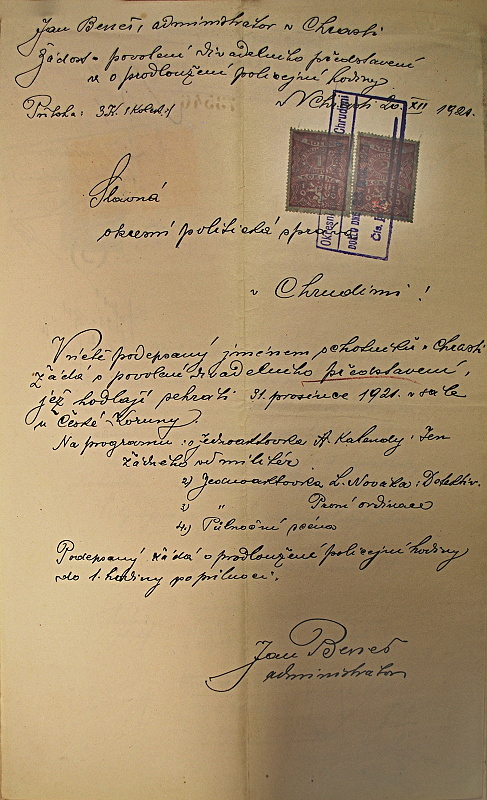 Jan Beneš, administrator v Chrasti
Žádost o povolení divadelního představení
a o prodloužení policejní hodiny
V Chrasti 20. XII 1921.
Příloha: 3 K. (kolek)
Okresní Chrudimi
Slavná
okresní politická správa
v Chrudimi!
V úctě podepsaný jménem v Chrasti
žádá o povolení divadelního představení,
jež hodlají sehráti 31. prosince 1921 v sále
u České Koruny.
Na programu: 1) Jednoaktovka A. Kalendy: Jen
žádného od militér
2) Jednoaktovka L. Nováka: Detektiv.
3) " První ordinace
4.) Půlnoční scéna
Podepsaný žádá o prodloužení policejní hodiny
do 1. hodiny po půlnoci.
Jan Beneš
administrator